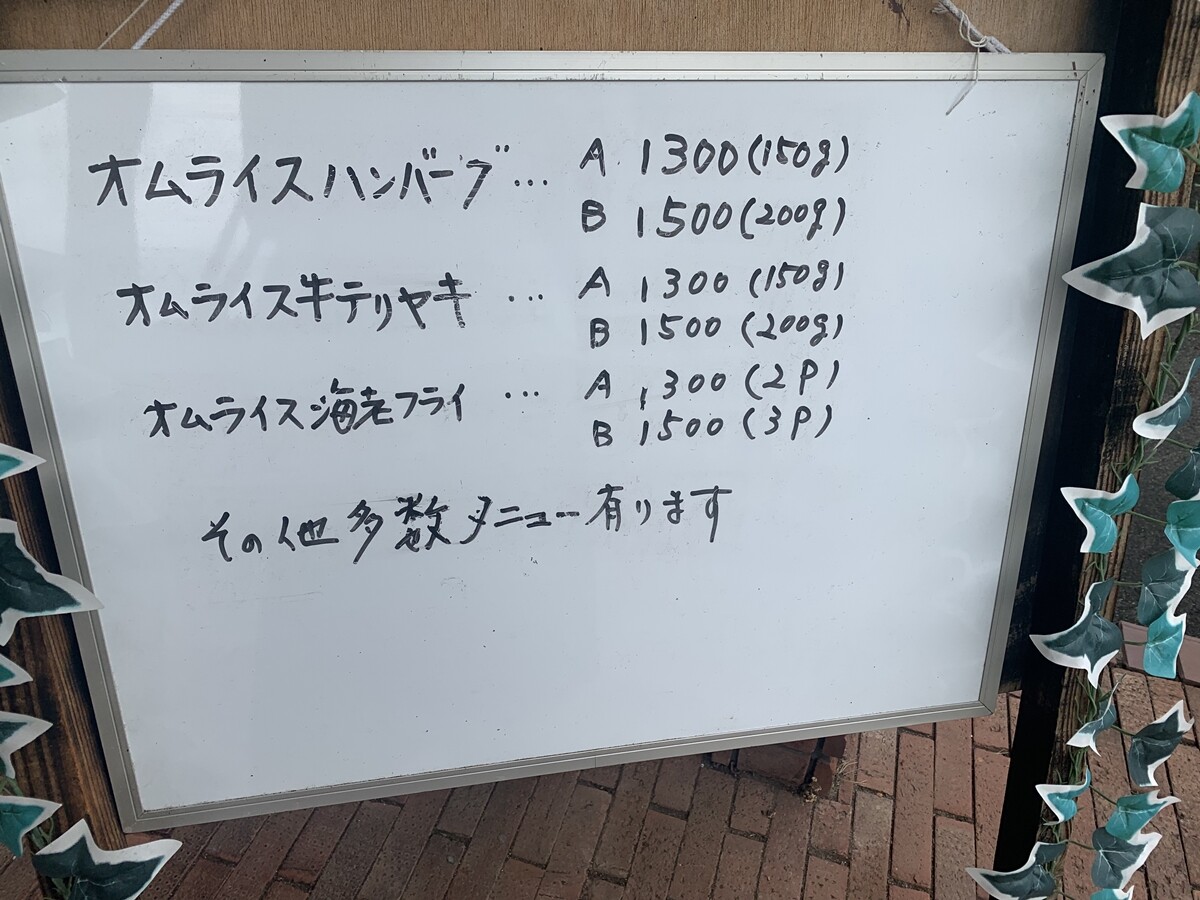 オムライスハンバーグ… A 1300(150g)
B 1500(200g)
オムライス牛テリヤキ … A 1300(150g)
B 1500(200g)
オムライス海老フライ … A 1300(2P)
B 1500(3P)
その他多数メニュー有ります